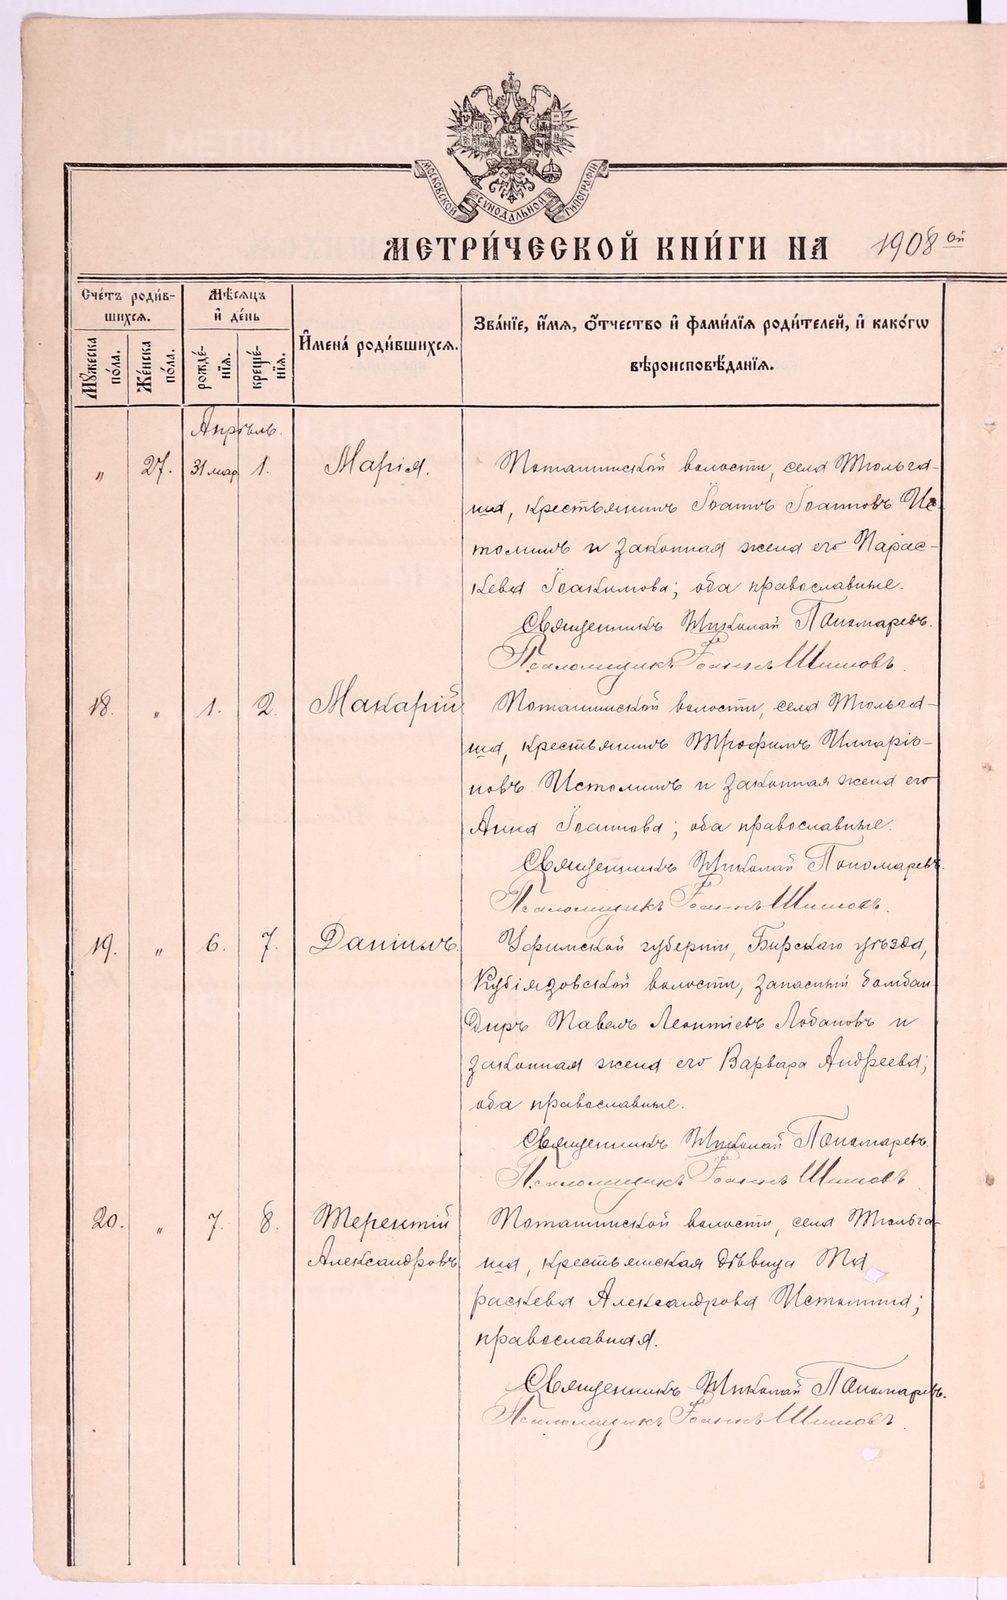 МОСКОВСКОЙ СѴНОДАЛЬНОЙ ТИПОГРАФІИ
МЕТРИ́ЧЕСКОЙ КНИ́ГИ НА 1908 ой
Счетъ роди́в-
шихся.
Мѣсяцъ
и де́нь
Имена́ роди́вшихся.
Зва́нїе, и́мя, ѻ́тчество и фами́лїя роди́телей, и како́гѡ
вѣроисповѣ́данїя.
Мꙋ́жеска по́ла.
Же́нска по́ла.
рожде́-нїя.
креще́-нїя.
Апрѣль.
„ 27. 31 мар 1. Марія.
Поташинской волости, села Тюльга-
ша, крестьянинъ Іоаннъ Іоанновъ Ис-
томинъ и законная жена его Парас-
кева Іоакимова; оба православные.
Священникъ Николай Пономаревъ.
Псаломщикъ Іоаннъ Шишовъ.
18. „ 1. 2. Макарій
Поташинской волости, села Тюльга-
ша, крестьянинъ Трофимъ Илларіо-
новъ Истоминъ и законная жена его
Анна Іоаннова; оба православные.
Священникъ Николай Пономаревъ.
Псаломщикъ Іоаннъ Шишовъ.
19. „ 6. 7. Даніилъ.
Уфимской губерніи, Бирскаго уѣзда,
Кубіязовской волости, запасный бомбан-
диръ Павелъ Леонтіевъ Лобановъ и
законная жена его Варвара Андреева;
оба православные.
Священникъ Николай Пономаревъ
Псаломщикъ Іоаннъ Шишовъ
20. „ 7. 8. Терентій
Александровъ
Поташинской волости, села Тюльга-
ша, крестьянская дѣвица Па
раскева Александрова Истомина;
православная.
Священникъ Николай Пономаревъ.
Псаломщикъ Іоаннъ Шишовъ.